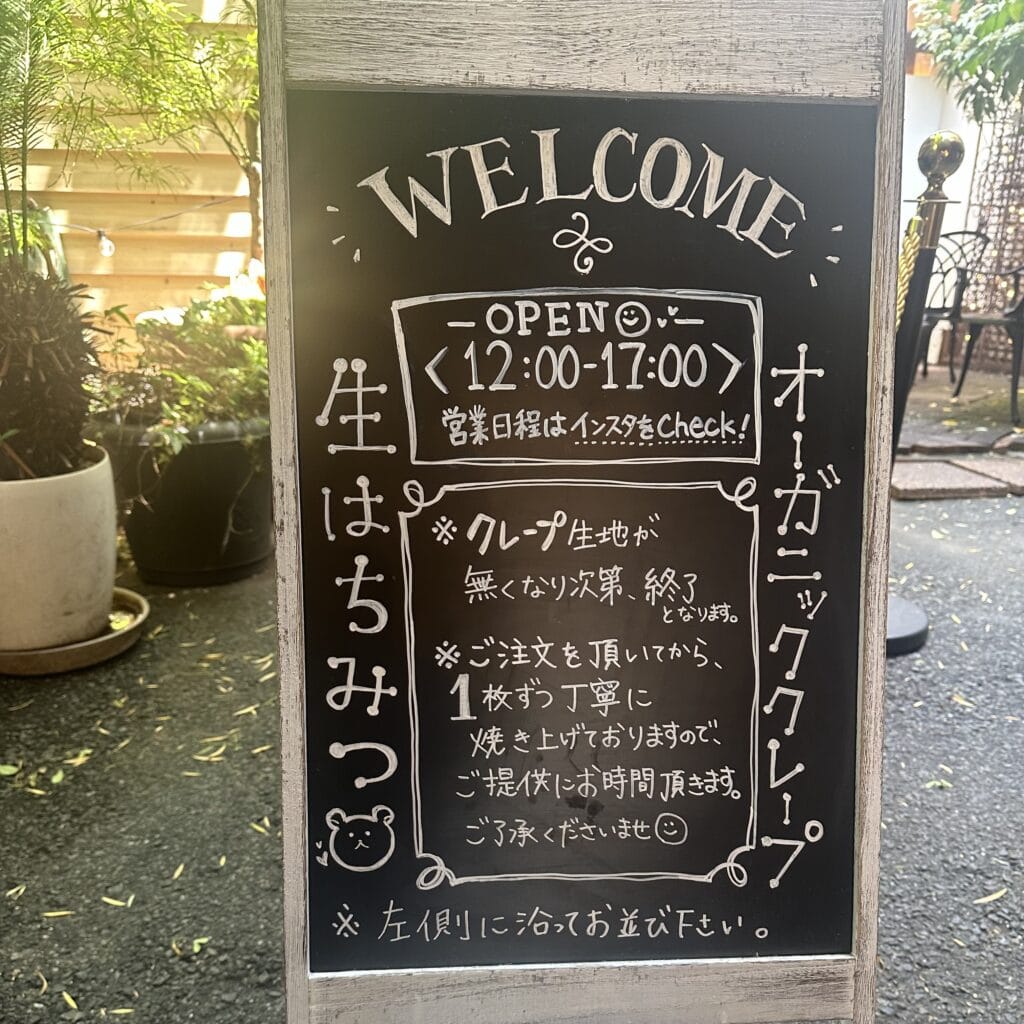 WELCOME
-OPEN-
<12:00-17:00>
営業日程はインスタをcheck!
オーガニッククレープ
生はちみつ
※クレープ生地が
無くなり次第、終了
となります。
※ご注文を頂いてから、
1枚ずつ丁寧に
焼き上げておりますので、
ご提供にお時間頂きます。
ご了承くださいませ
※左側に沿ってお並び下さい。